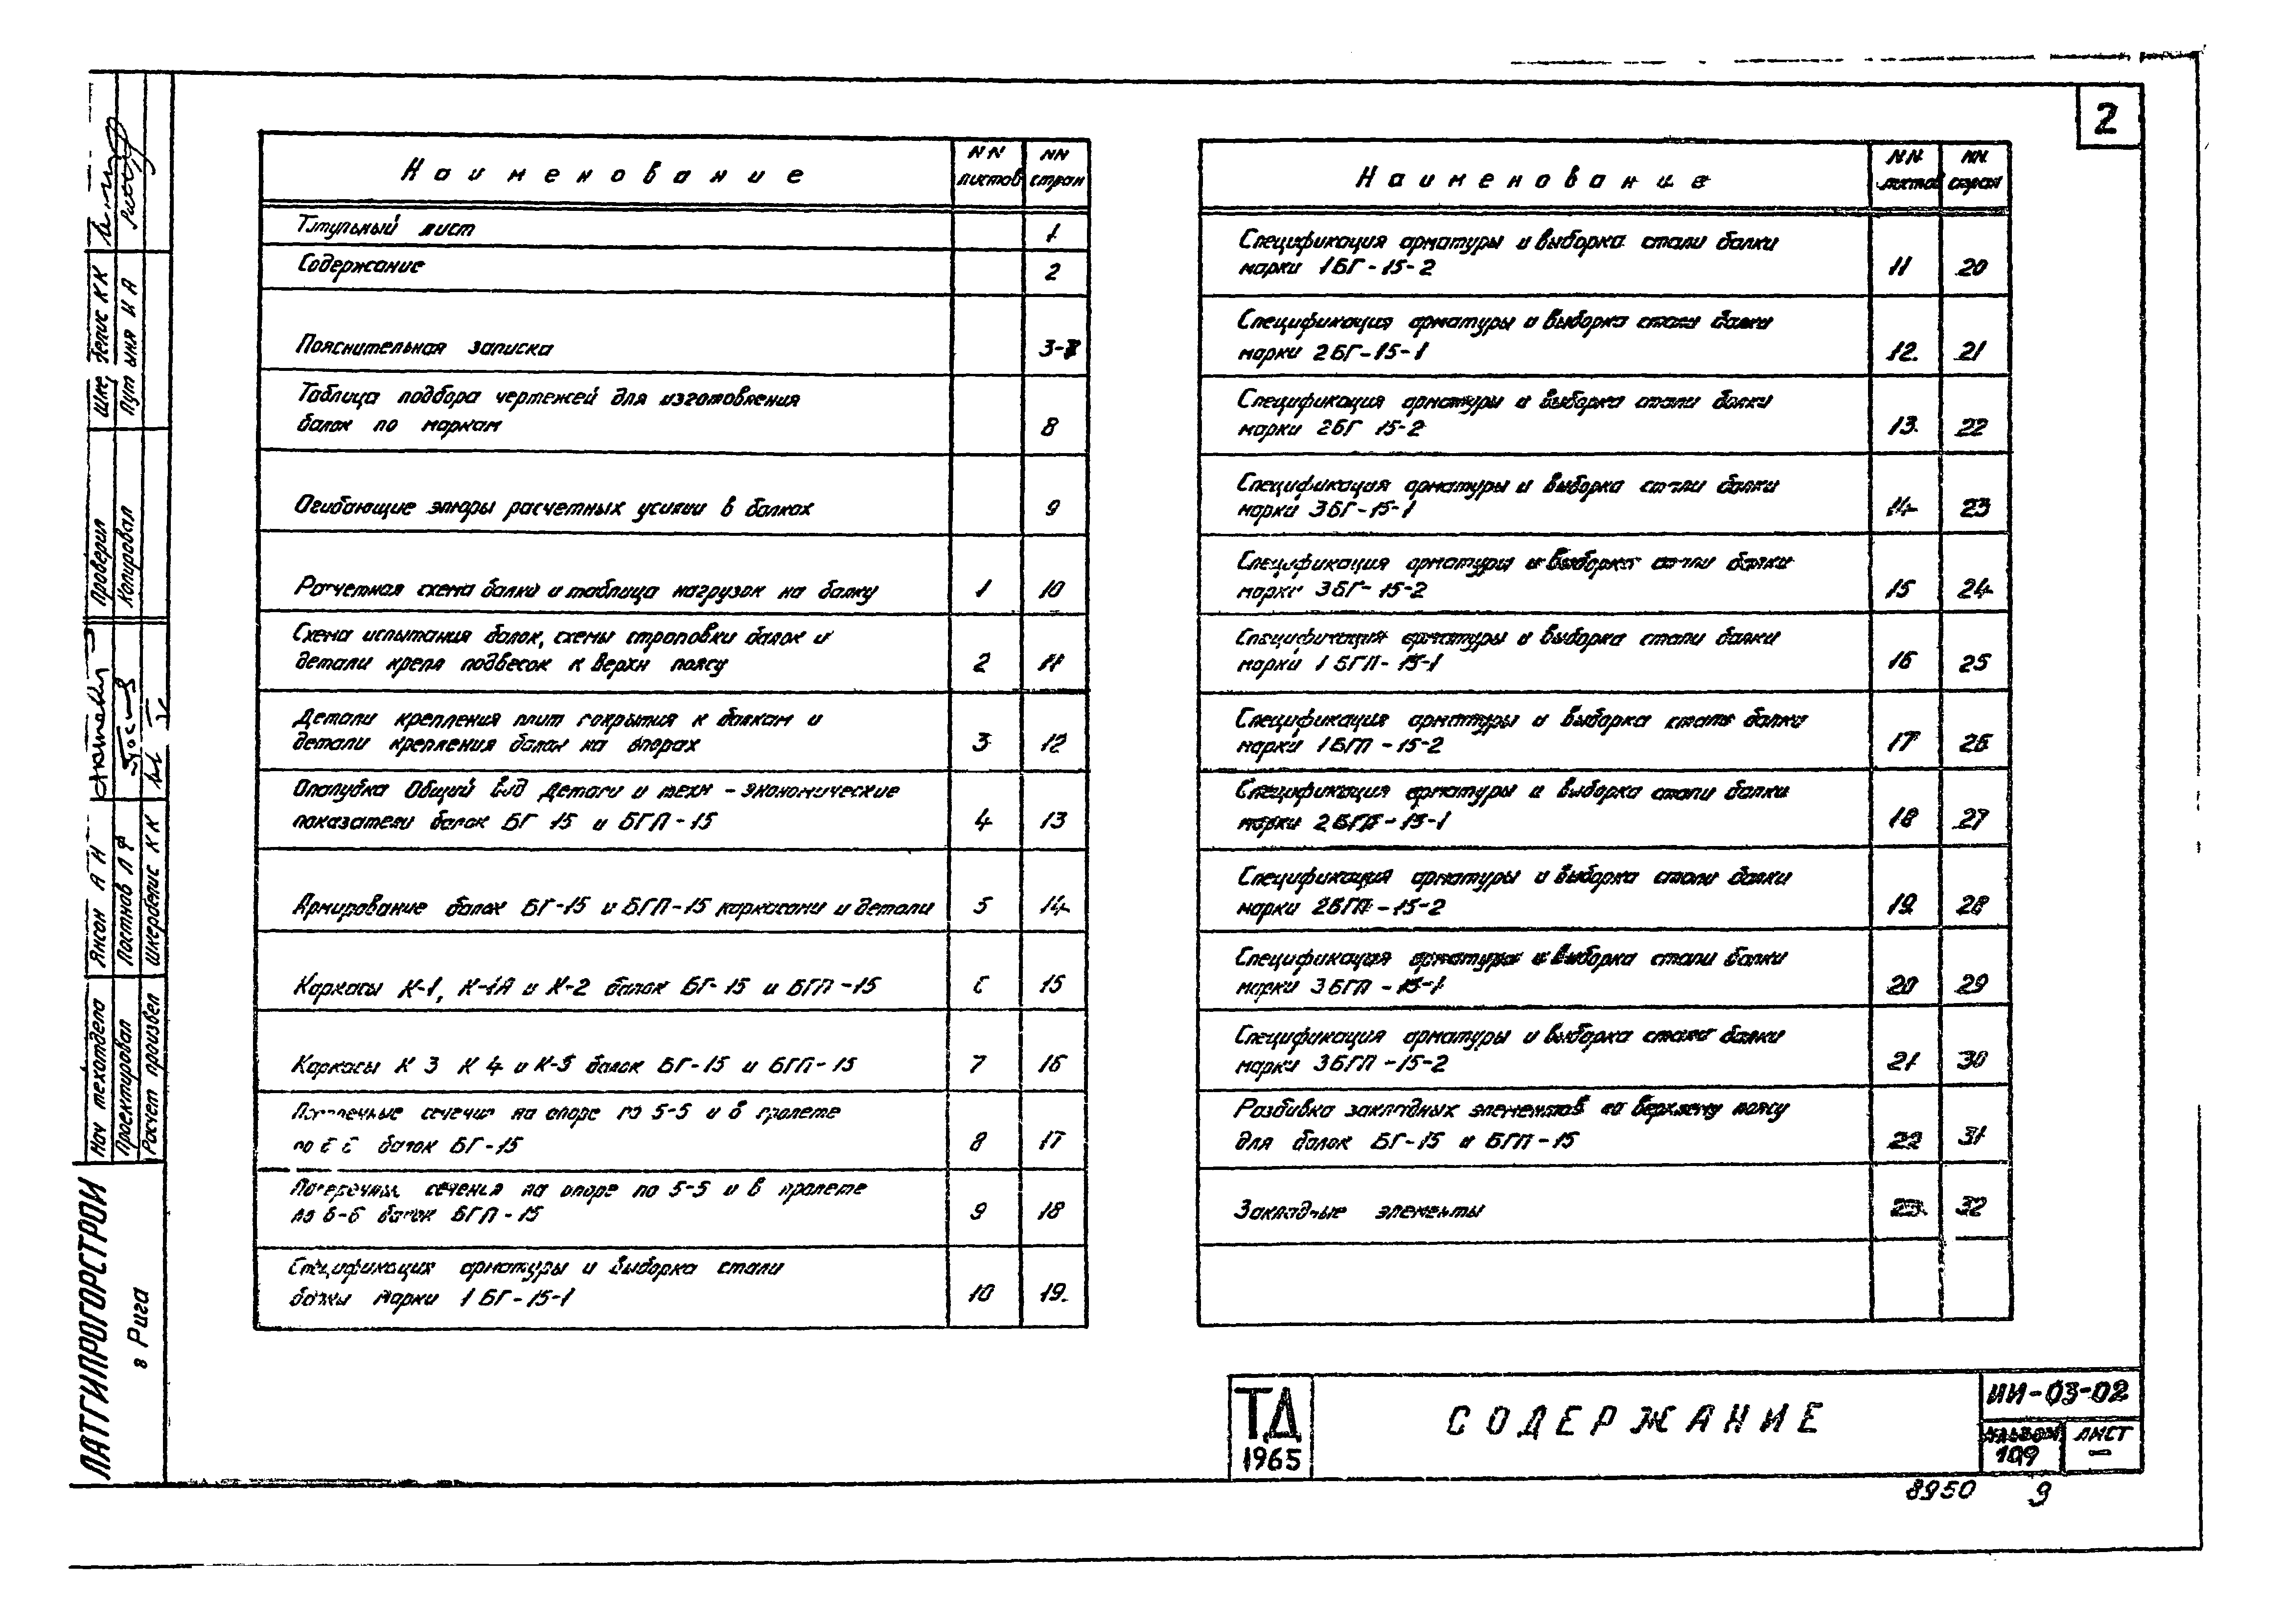 2
Наименование NN листов NN стран
Титульный лист 1
Содержание 2
Пояснительная записка 3-7
Таблица подбора чертежей для изготовления
балок по маркам 8
Огибающие эпюры расчетных усилии в балках 9
Расчетная схема балки и таблица нагрузок на балку 1 10
Схема испытания балок, схемы строповки балок и
детали крепл подвесок к верхн поясу 2 11
Детали крепления плит покрытия к балкам и
детали крепления балок на опорах 3 12
Опалубка Общий вид Детали и техн - экономические
показатели балок БГ 15 и БГП-15 4 13
Армирование балок БГ-15 и БГП-15 каркасами и детали 5 14
Каркасы К-1, К-1А и К-2 балок БГ-15 и БГП-15 6 15
Каркасы К 3 К 4 и К-5 балок БГ-15 и БГП-15 7 16
Поперечные сечения на опоре по 5-5 и в пролете
по 6 6 балок БГ-15 8 17
Поперечные сечения на опоре по 5-5 и в пролете
по 6-6 балок БГП-15 9 18
Спецификация арматуры и выборка стали
балки марки 1БГ-15-1 10 19
Наименование NN листов NN стран
Спецификация арматуры и выборка стали балки
марки 1БГ-15-2 11 20
Спецификация арматуры и выборка стали балки
марки 2БГ-15-1 12 21
Спецификация арматуры и выборка стали балки
марки 2БГ 15-2 13 22
Спецификация арматуры и выборка стали балки
марки 3БГ-15-1 14 23
Спецификация арматуры и выборка стали балки
марки 3БГ-15-2 15 24
Спецификация арматуры и выборка стали балки
марки 1БГП-15-1 16 25
Спецификация арматуры и выборка стали балки
марки 1БГП-15-2 17 26
Спецификация арматуры и выборка стали балки
марки 2БГП-15-1 18 27
Спецификация арматуры и выборка стали балки
марки 2БГП-15-2 19 28
Спецификация арматуры и выборка стали балки
марки 3БГП-15-1 20 29
Спецификация арматуры и выборка стали балки
марки 3БГП-15-2 21 30
Разбивка закладных элементов по верхнему поясу
для балок БГ-15 и БГП-15 22 31
Закладные элементы 23 32
ТД
1965
СОДЕРЖАНИЕ
ИИ-03-02
АЛЬБОМ
109
ЛИСТ
—
8950 9
ЛАТГИПРОГОРСТРОЙ
г Рига
Нач техотдела Янсон А Н Проверил
Проектировал Постнов Л Ф Копировал
Расчет произвел Шкерbелис К К